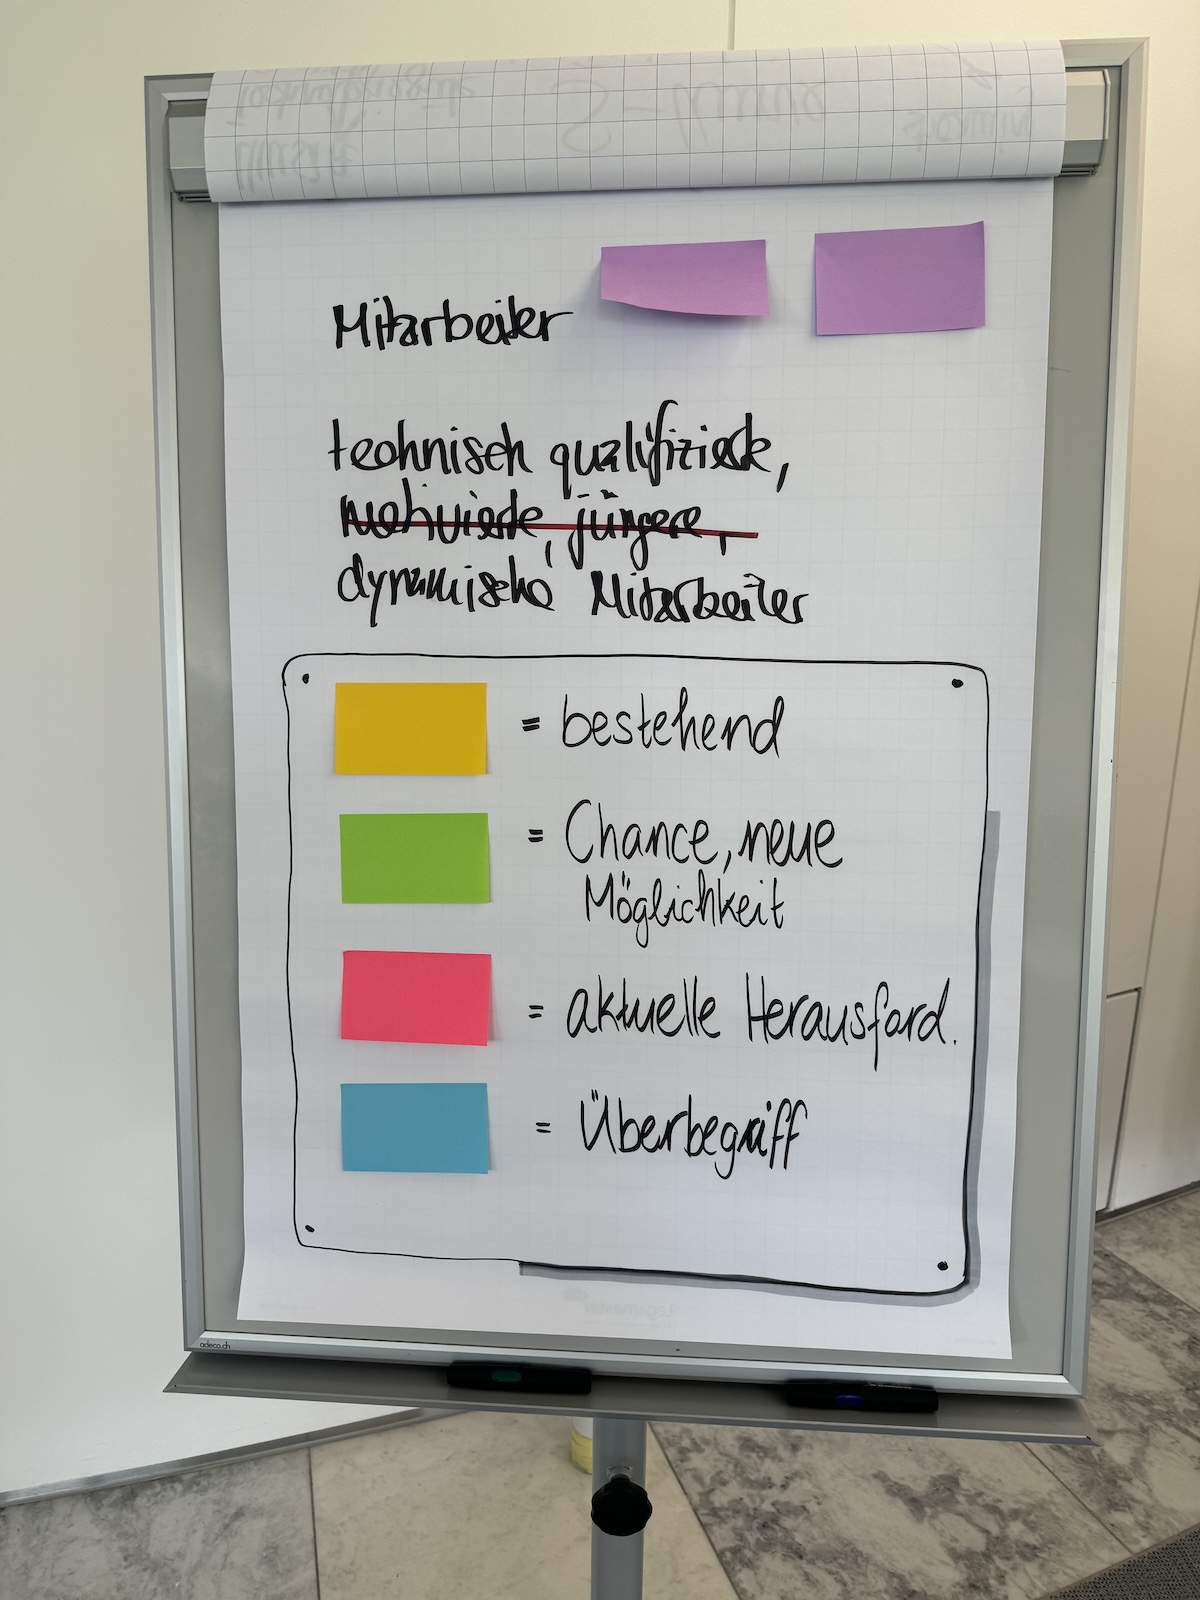 Mitarbeiter
technisch qualifizierte,
motivierte, jüngere,
dynamische Mitarbeiter
= bestehend
= Chance, neue
Möglichkeit
= aktuelle Herausford.
= Überbegriff
Legamaster
adeco.ch